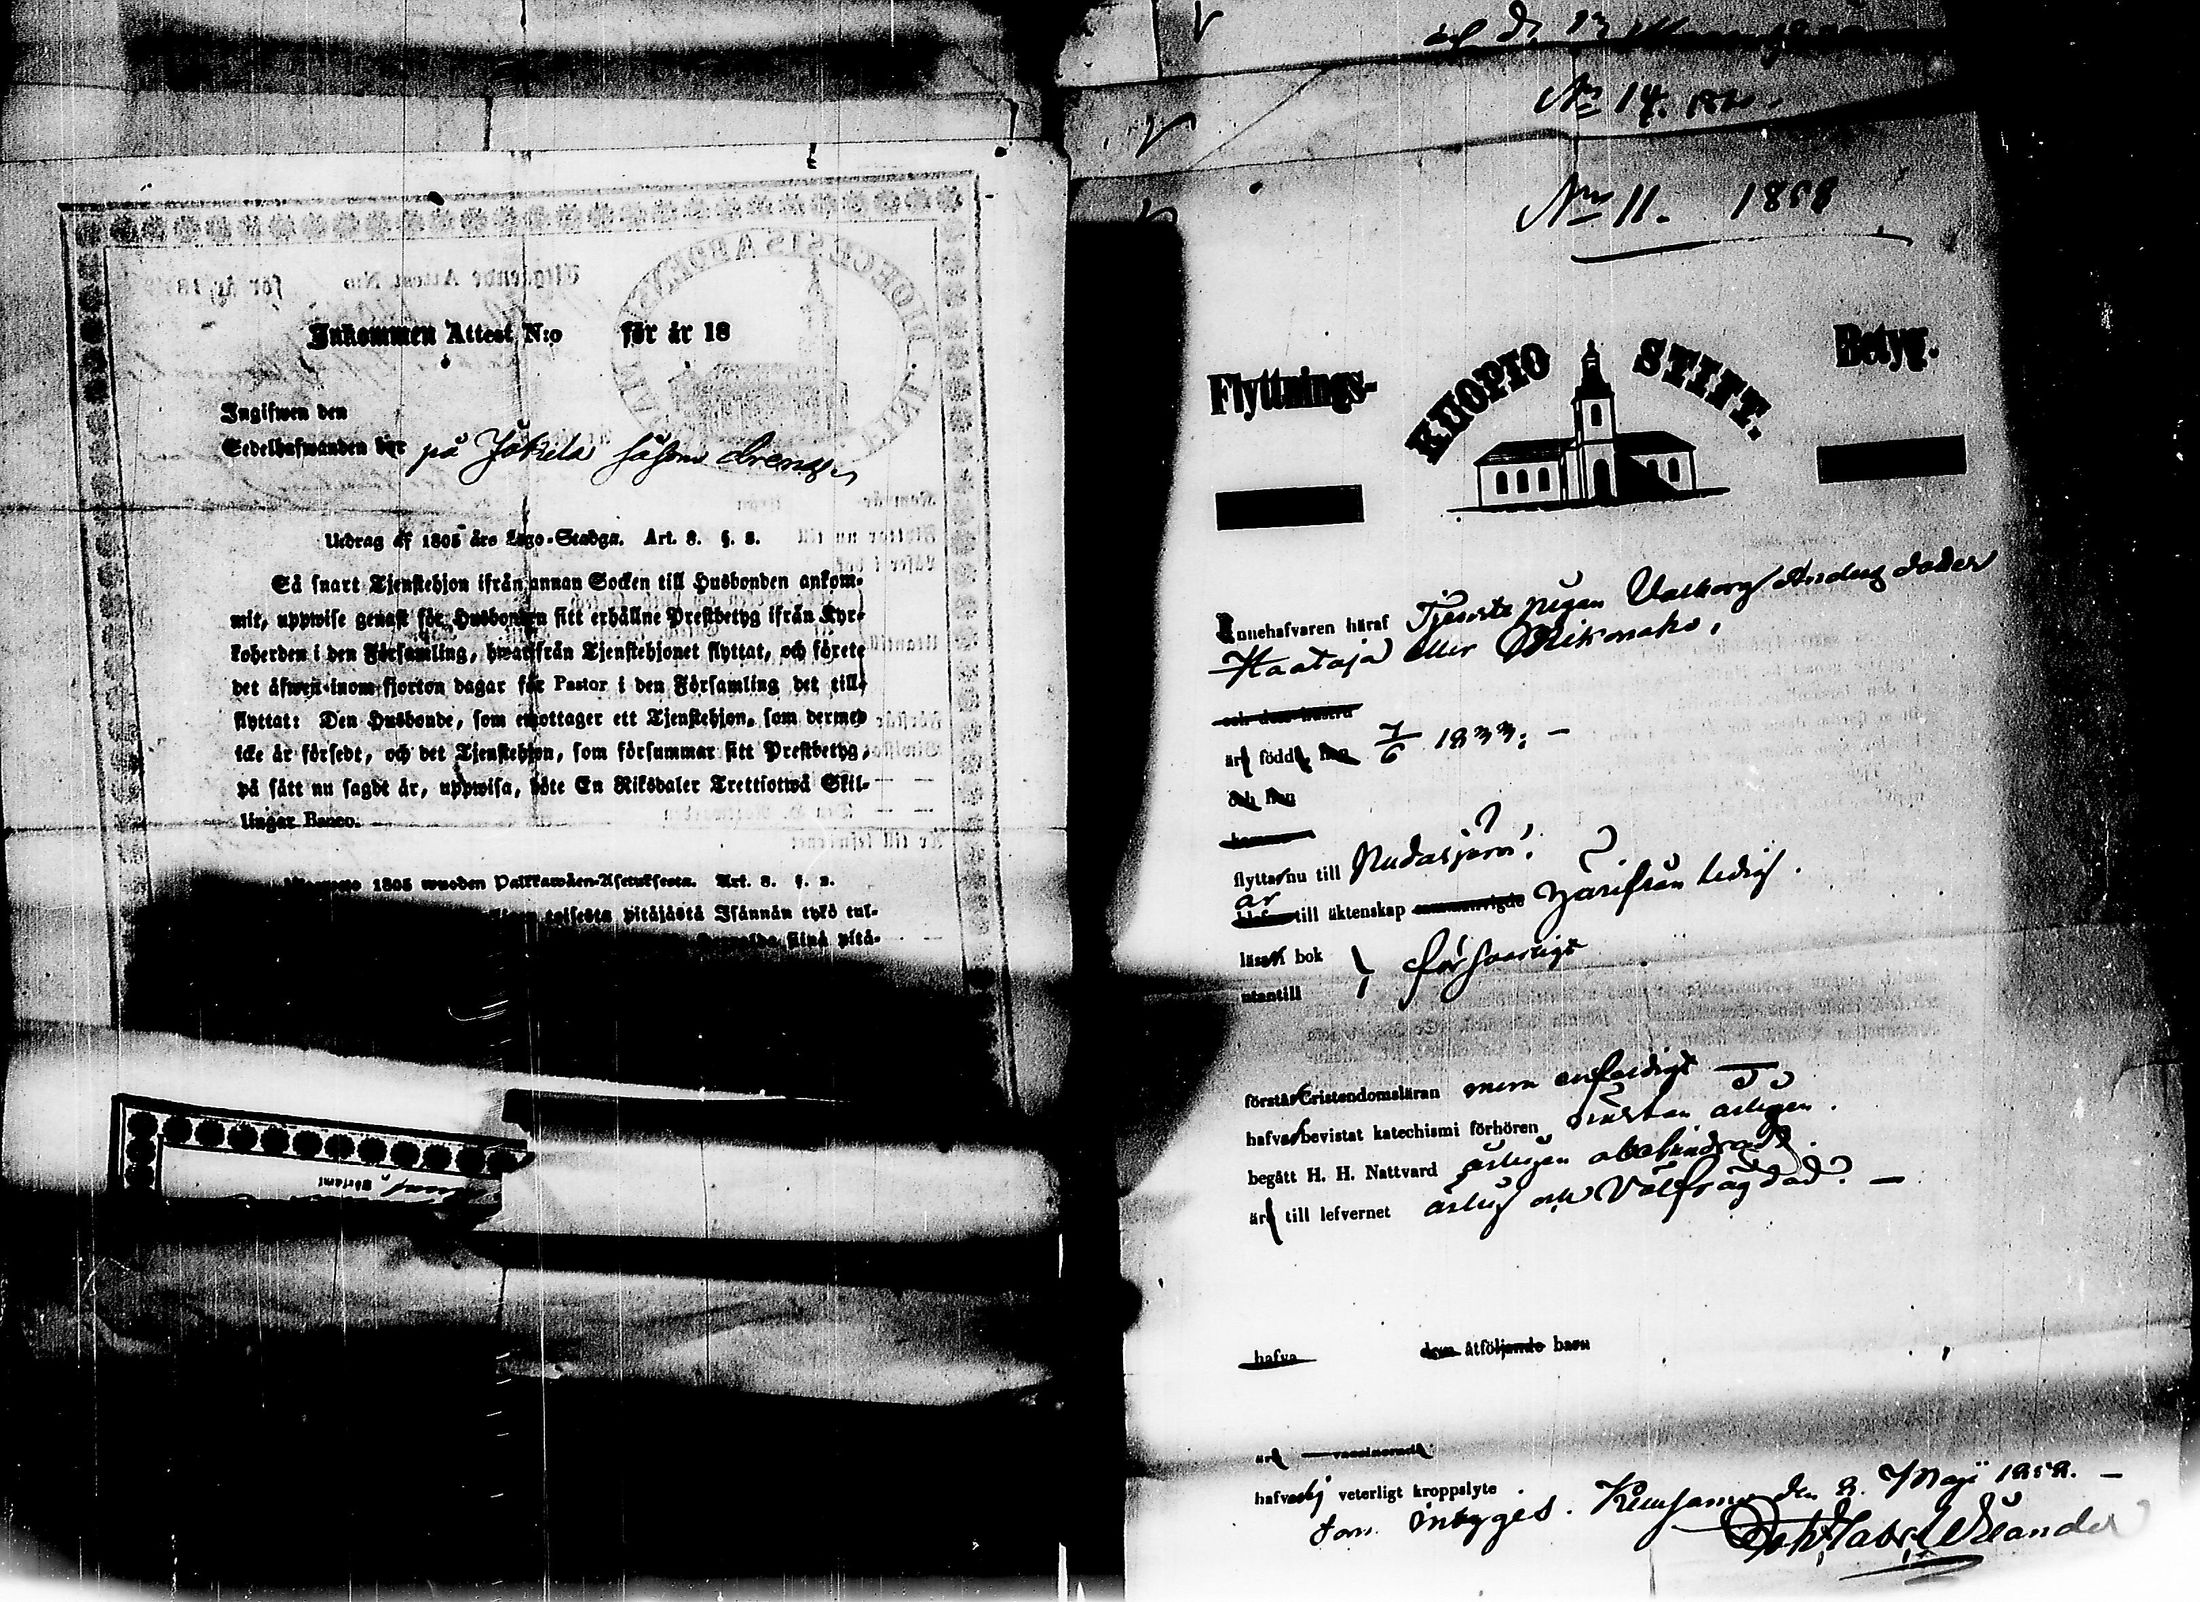 Inkommen Attest N:o för år 18
Ingifwen den
Sedelhafwanden bör på Jokela såsom dreng
Utdrag af 1805 års Lego-Stadga. Art. 8. §. 2.
Så snart Tjenstehjon ifrån annan Socken till Husbonden ankom-
mit, uppwise genast för Husbonden sitt erhållne Prestbetyg ifrån Kyr-
koherden i den Församling, hwarifrån Tjenstehjonet flyttat, och förete
det äfwen inom fjorton dagar för Pastor i den Församling det till-
flyttat: Den Husbonde, som emottager ett Tjenstehjon, som dermed
icke är försedt, och det Tjenstehjon, som försummar sitt Prestbetyg,
på sätt nu sagdt är, uppwisa, böte En Riksdaler Trettiotwå Skil-
lingar Banco.
1805 wuoden Palkkawäen-Asetuksesta. Art. 8. §. 2.
toisesta pitäjästä Isännän tykö tul-
siinä pitä-
No 14.
No 11. 1858
Flyttnings- KUOPIO STIFT. Betyg.
Innehafvaren häraf Tjenste pigan Valborg Anders dotter
Haataja eller Mikonaho,
och dess hustru
är född den 7/6 1833. –
och hon
kommo
flyttar nu till Pudasjärvi.
är
till äktenskap sammanvigde härifrån ledig.
läser i bok } försvarligt
utantill
förstår Cristendomsläran mera enfaldigt —
hafver bevistat katechismi förhören nästan årligen.
begått H. H. Nattvard årligen obehindrad.
är till lefvernet ärlig och välfrägdad. —
hafva dem åtföljande barn
är vaccinerad
hafver ej veterligt kroppslyte
som intygas. Kuusamo den 2. Maji 1858. –